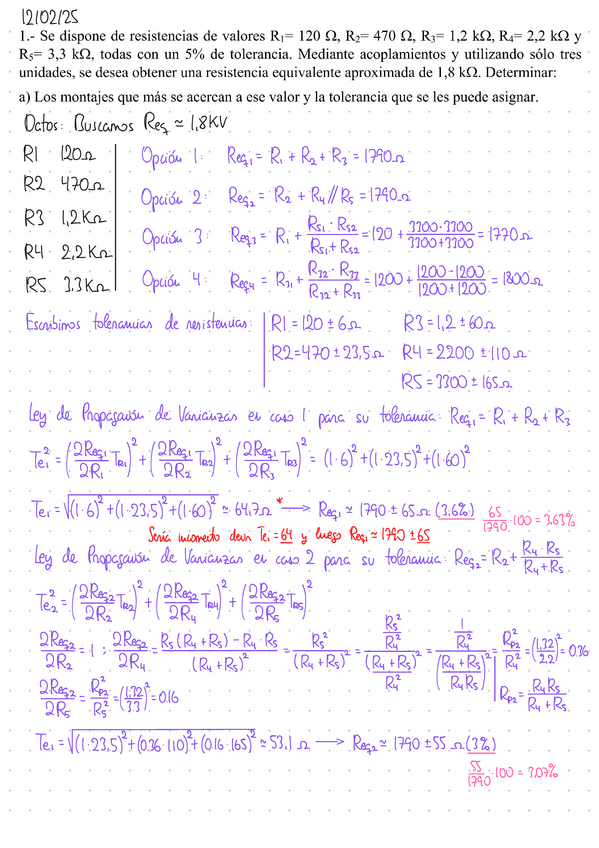 12/02/25
1.- Se dispone de resistencias de valores R1= 120 Ω, R2= 470 Ω, R3= 1,2 kΩ, R4= 2,2 kΩ y
R5= 3,3 kΩ, todas con un 5% de tolerancia. Mediante acoplamientos y utilizando sólo tres
unidades, se desea obtener una resistencia equivalente aproximada de 1,8 kΩ. Determinar:
a) Los montajes que más se acercan a ese valor y la tolerancia que se les puede asignar.
Datos: Buscamos Req ≃ 1,8KV
R1 120Ω
R2 470Ω
R3 1,2KΩ
R4 2,2KΩ
R5 3,3KΩ
Opción 1: Req1 = R1 + R2 + R3 = 1790Ω
Opción 2: Req2 = R2 + R4 // R5 = 1790Ω
Opción 3: Req3 = R1 + (R51 · R52)/(R51 + R52) = 120 + (3300·3300)/(3300+3300) = 1770Ω
Opción 4: Req4 = R31 + (R32 · R33)/(R32 + R33) = 1200 + (1200·1200)/(1200+1200) = 1800Ω
Escribimos tolerancias de resistencias:
R1 = 120 ± 6Ω R3 = 1,2 ± 60Ω
R2 = 470 ± 23,5Ω R4 = 2200 ± 110Ω
R5 = 3300 ± 165Ω
Ley de Propagación de Varianzas en caso 1 para su tolerancia: Req1 = R1 + R2 + R3
Te1² = (2Req1/2R1 TR1)² + (2Req1/2R2 TR2)² + (2Req1/2R3 TR3)² = (1·6)² + (1·23,5)² + (1·60)²
Te1 = √((1·6)² + (1·23,5)² + (1·60)²) ≃ 64,7Ω * → Req1 ≃ 1790 ± 65Ω (3,6%) 65/1790 · 100 = 3,63%
Sería incorrecto decir Te1 = 64 y luego Req1 ≃ 1790 ± 65
Ley de Propagación de Varianzas en caso 2 para su tolerancia: Req2 = R2 + (R4 · R5)/(R4 + R5)
Te2² = (2Req2/2R2 TR2)² + (2Req2/2R4 TR4)² + (2Req2/2R5 TR5)²
2Req2/2R2 = 1 ; 2Req2/2R4 = (R5 (R4 + R5) - R4 · R5)/(R4 + R5)² = R5²/(R4 + R5)² = (R5²/R4²)/((R4 + R5)²/R4²) = (1/R4²)/((R4 + R5)/(R4R5))² = RP2²/R4² = (1,32/2,2)² = 0,36
2Req2/2R5 = RP2²/R5² = (1,32/3,3)² = 0,16 RP2 = R4R5/(R4 + R5)
Te1 = √((1·23,5)² + (0,36·110)² + (0,16·165)²) ≃ 53,1 Ω → Req2 ≃ 1790 ± 55 Ω (3%)
55/1790 · 100 = 3,07%